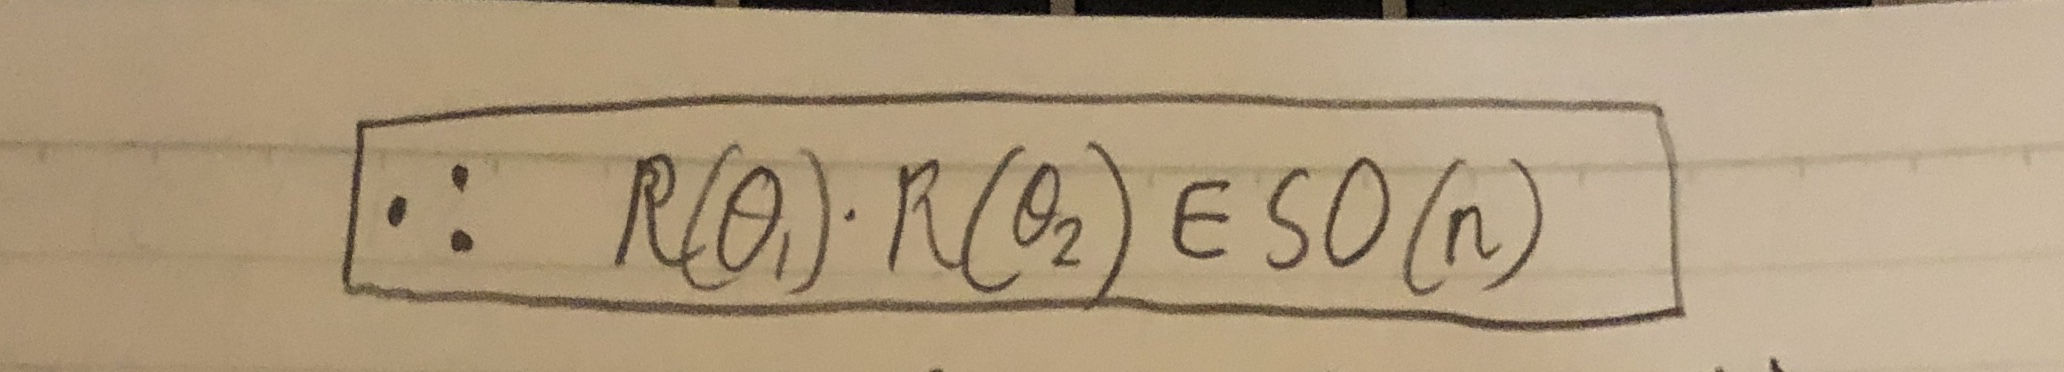 ∴ R(θ₁)·R(θ₂) ∈ SO(n)